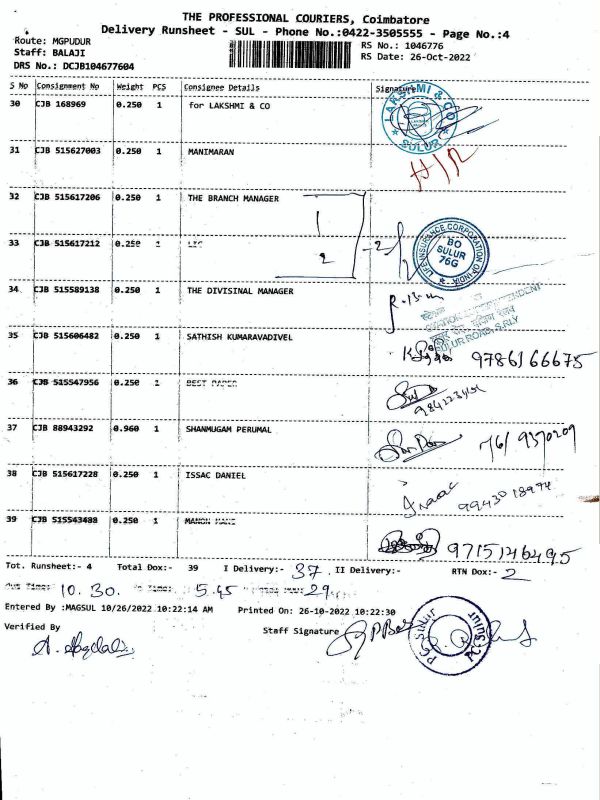 THE PROFESSIONAL COURIERS, Coimbatore
Delivery Runsheet - SUL - Phone No.:0422-3505555 - Page No.:4
Route: MGPUDUR
RS No.: 1046776
Staff: BALAJI
RS Date: 26-Oct-2022
DRS No.: DCJB104677604
S No Consignment No Weight PCS Consignee Details Signature
30 CJB 168969 0.250 1 for LAKSHMI & CO
LAKSHMI & CO SULUR
31 CJB 515627003 0.250 1 MANIMARAN
32 CJB 515617206 0.250 1 THE BRANCH MANAGER
1
33 CJB 515617212 0.250 1 LIC
2 - 2
LIFE INSURANCE CORPORATION OF INDIA
BO
SULUR
76G
34 CJB 515589138 0.250 1 THE DIVISINAL MANAGER
SULUR ROAD, S.RLY
35 CJB 515606482 0.250 1 SATHISH KUMARAVADIVEL
9786166675
36 CJB 515547956 0.250 1 BEST PAPER
37 CJB 88943292 0.960 1 SHANMUGAM PERUMAL
38 CJB 515617228 0.250 1 ISSAC DANIEL
Isaac
9943018974
39 CJB 515543488 0.250 1
9715146495
Tot. Runsheet:- 4 Total Dox:- 39 I Delivery:- 37 II Delivery:- RTN Dox:- 2
10.30. 5.45 29
Entered By :MAGSUL 10/26/2022 10:22:14 AM Printed On: 26-10-2022 10:22:30
Verified By
Staff Signature